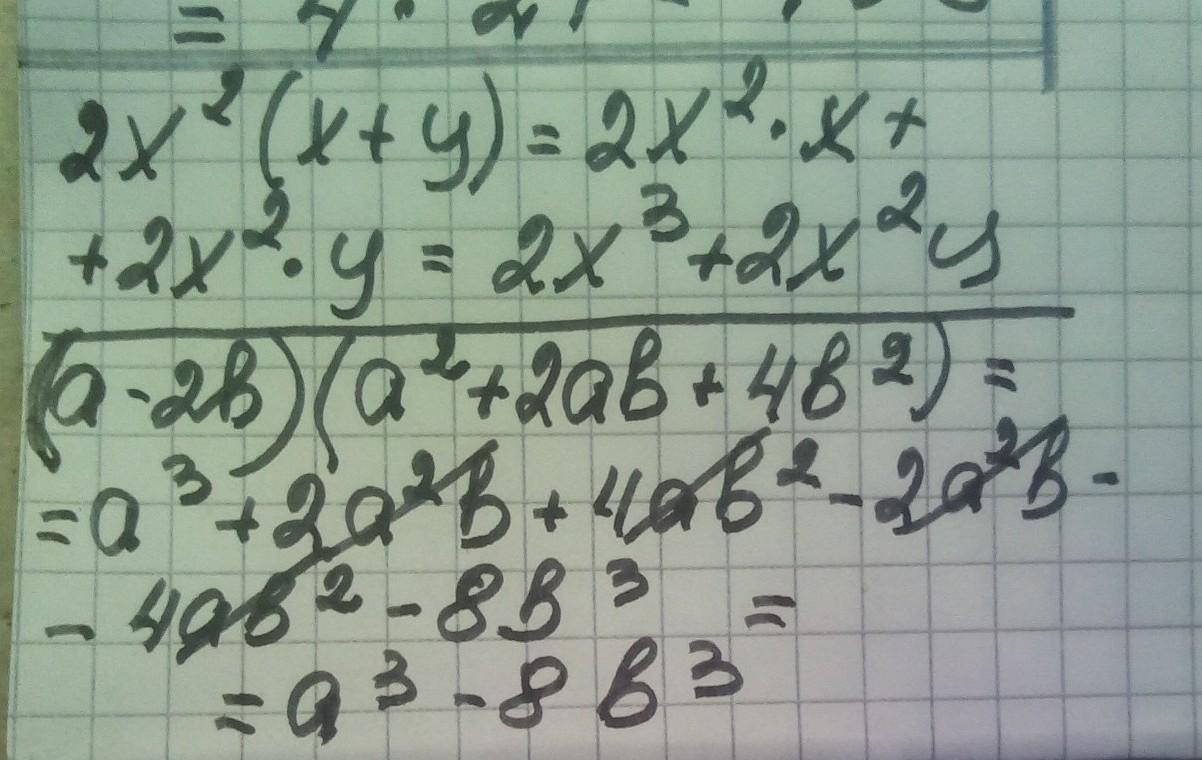 2x²(x+y) = 2x²·x+
+2x²·y = 2x³+2x²y
(a-2b)(a²+2ab+4b²) =
=a³+2a²b+4ab²-2a²b-
-4ab²-8b³ =
=a³-8b³